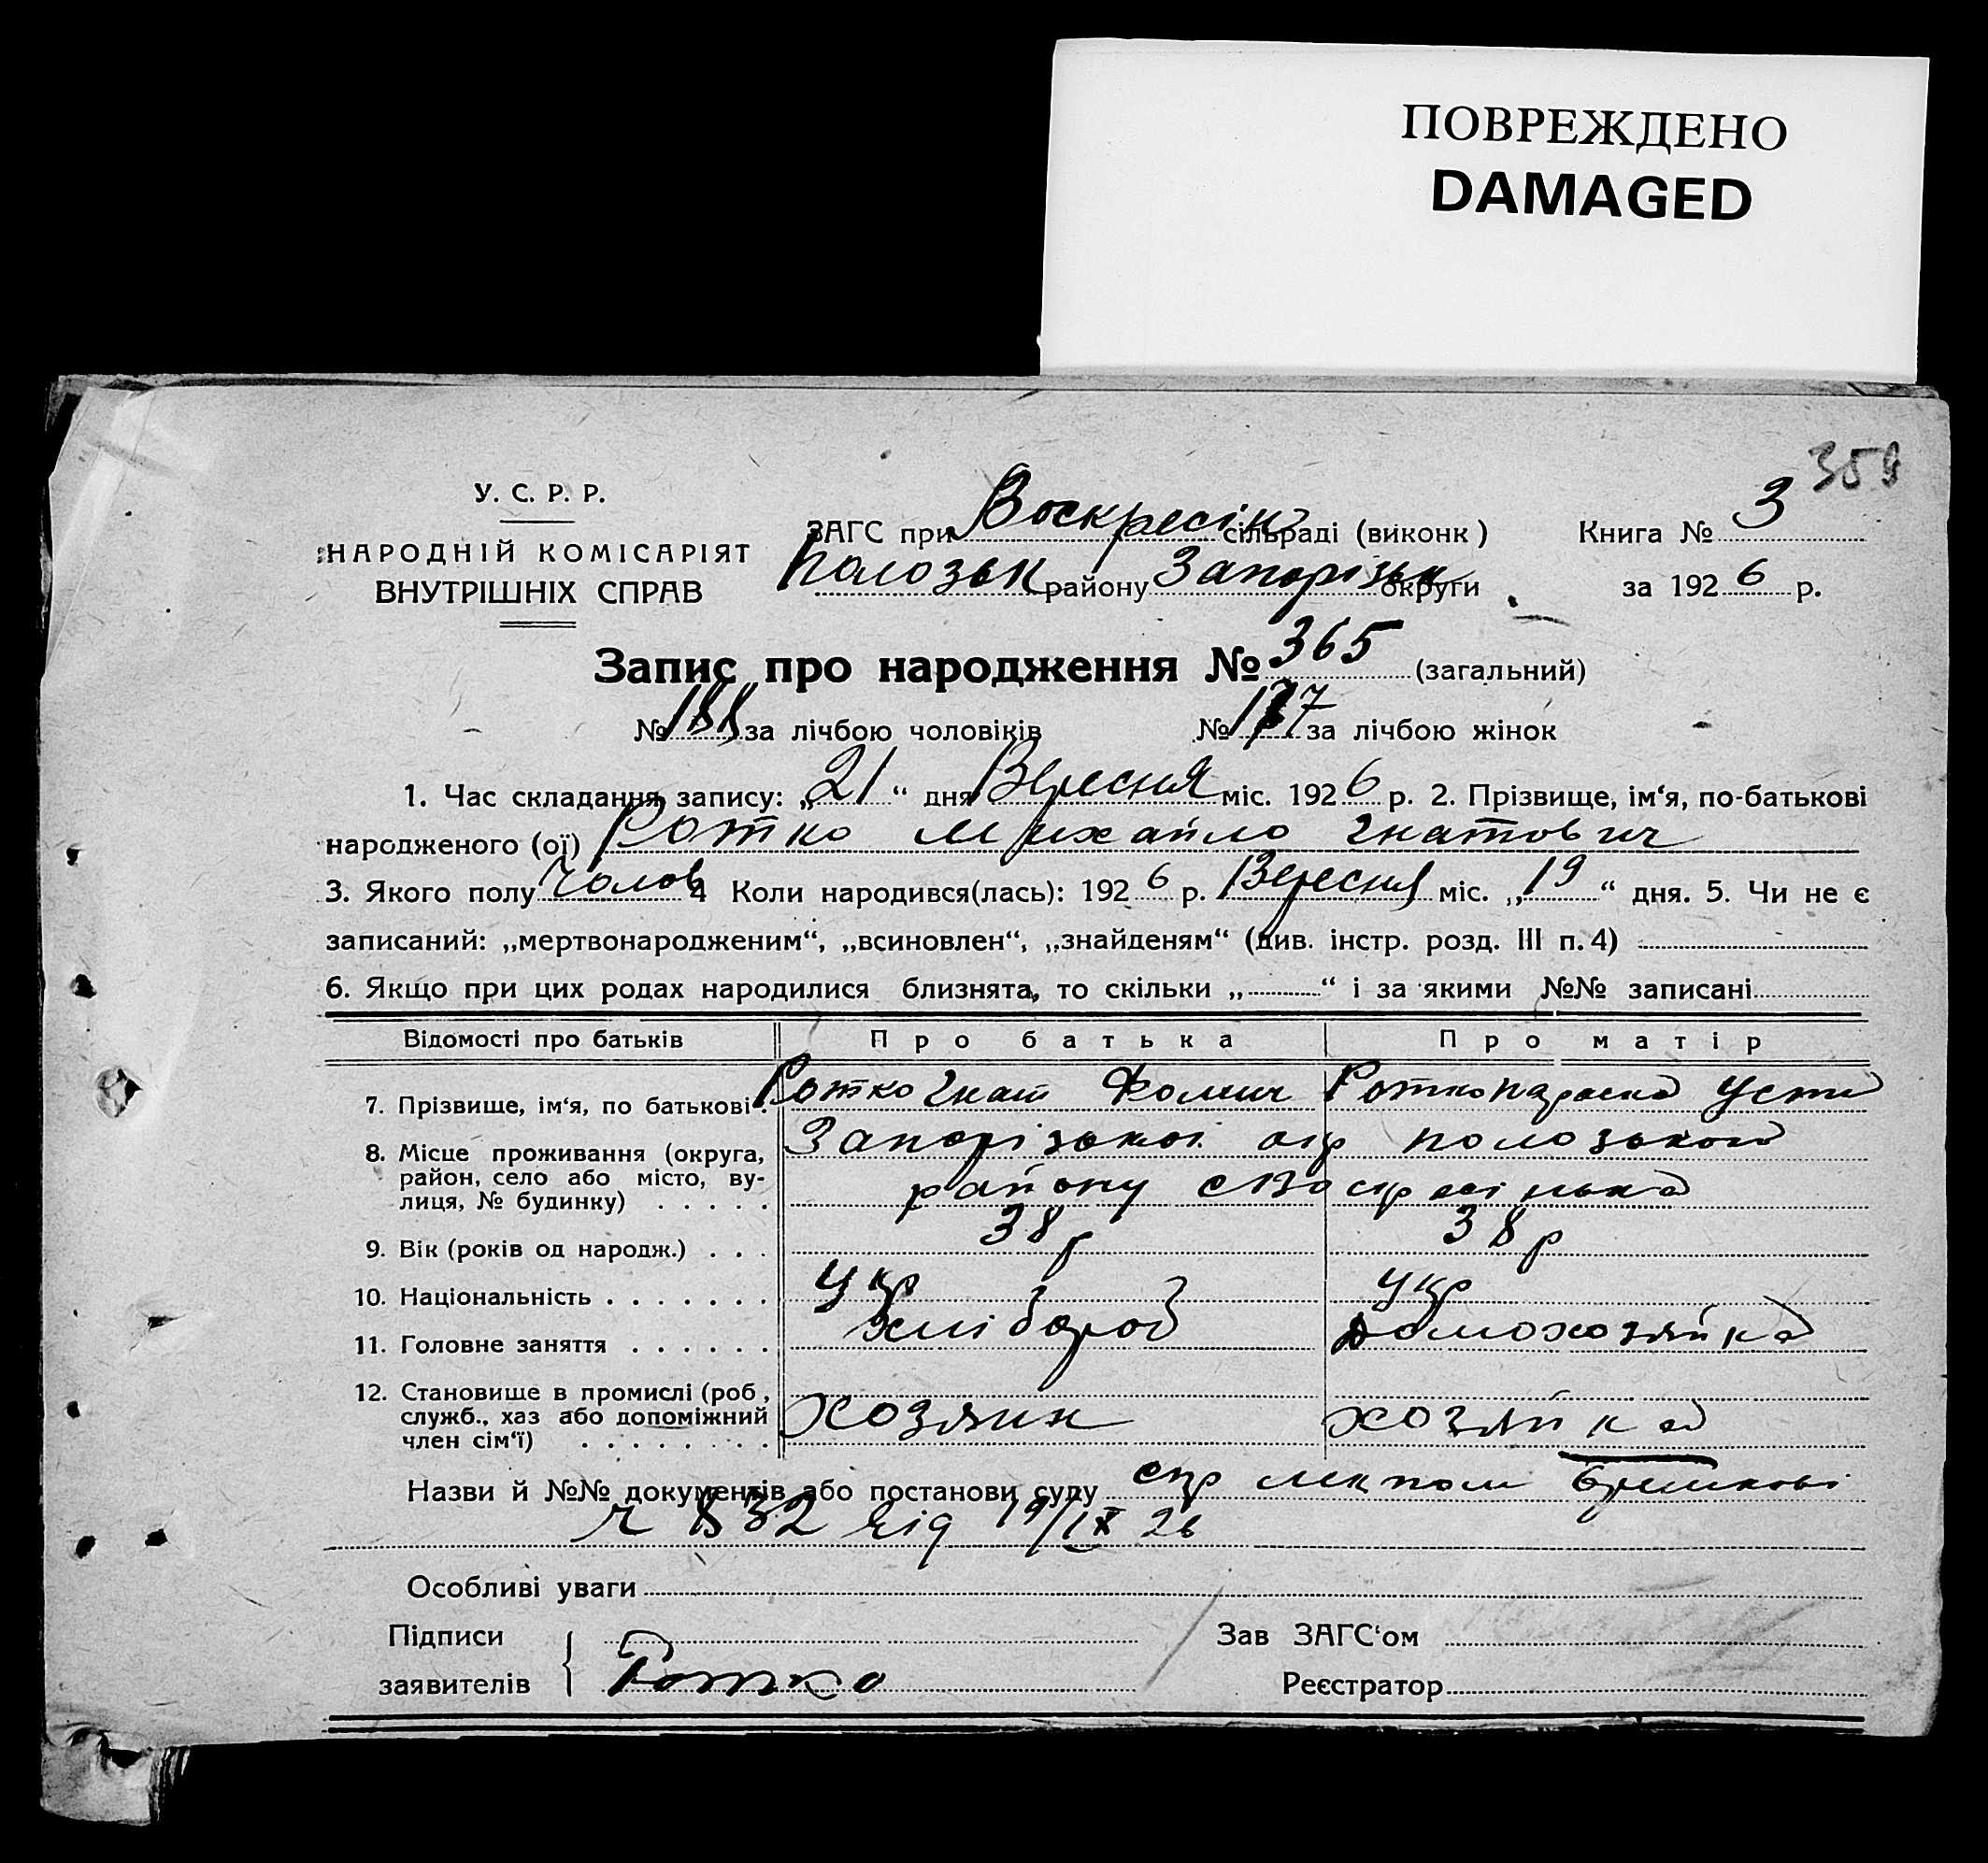 ПОВРЕЖДЕНО
DAMAGED
359
У. С. Р. Р.
НАРОДНІЙ КОМІСАРІЯТ
ВНУТРІШНІХ СПРАВ
ЗАГС при Воскресін сільраді (виконк)
Полозьк району Запорізьк округи
Книга № 3
за 1926 р.
Запис про народження № 365 (загальний)
№ 188 за лічбою чоловіків № 177 за лічбою жінок
1. Час складання запису: „21“ дня Вересня міс. 1926 р. 2. Прізвище, ім‘я, по-батькові
народженого (ої) Ротко Михайло Гнатович
3. Якого полу Чолов 4 Коли народився(лась): 1926 р. Вересня міс. „19“ дня. 5. Чи не є
записаний: „мертвонародженим“, „всиновлен“, „знайденям“ (див. інстр. розд. III п. 4)
6. Якщо при цих родах народилися близнята, то скільки „ “ і за якими №№ записані
Відомості про батьків Про батька Про матір
7. Прізвище, ім‘я, по батькові . Ротко Гнат Фомич Ротко Параска Усти
8. Місце проживання (округа, Запорізької окр Полозького
район, село або місто, ву-
лиця, № будинку) . . . . . району с Воскресінька
9. Вік (років од народж.) . . . 38 р 38 р
10. Національність . . . . . . . Укр Укр
11. Головне заняття . . . . . . хлібороб домохозяйка
12. Становище в промислі (роб.,
служб., хаз або допоміжний хозяин хозяйка
член сім‘ї) . . . . . . . .
Назви й №№ документів або постанови суду
ч 832 від 19/IX 26
Особливі уваги
Підписи
заявителів Ротко
Зав ЗАГС‘ом
Реєстратор